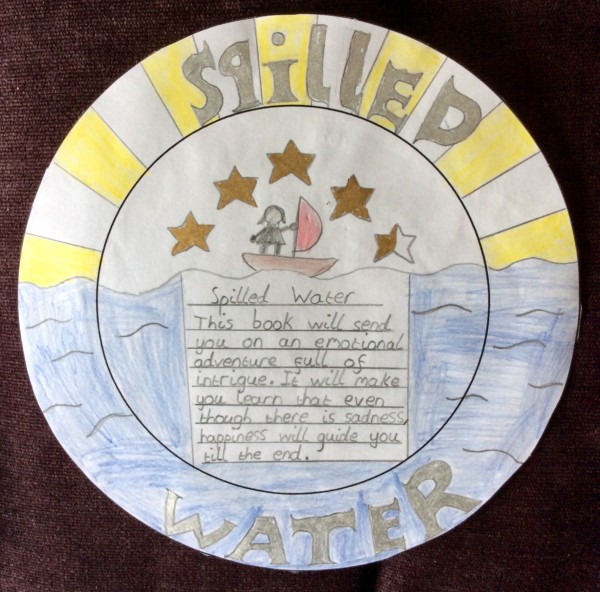 SpillED
Spilled Water
This book will send
you on an emotional
adventure full of
intrigue. It will make
you learn that even
though there is sadness,
happiness will guide you
till the end.
WATER